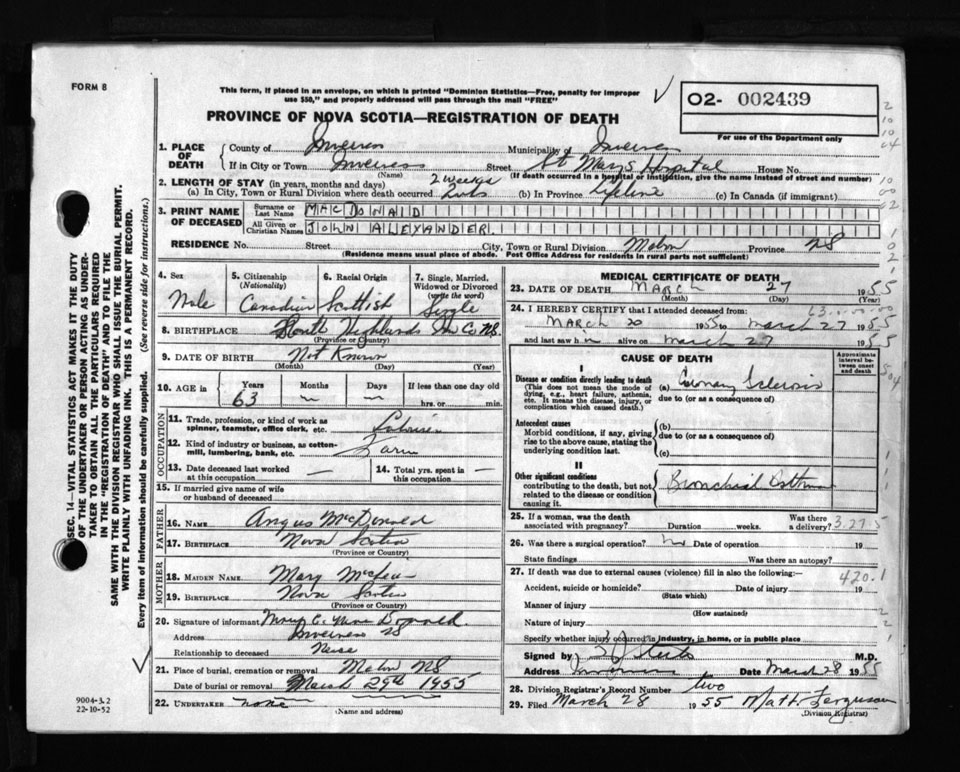 FORM 8
This form, if placed in an envelope, on which is printed "Dominion Statistics—Free, penalty for improper
use $50," and properly addressed will pass through the mail "FREE"
✓
O2- 002439
PROVINCE OF NOVA SCOTIA—REGISTRATION OF DEATH
For use of the Department only
1. PLACE OF DEATH
County of Inverness Municipality of Inverness
If in City or Town Inverness Street St Mary's Hospital House No.
(Name) (If death occurred in a hospital or institution, give the name instead of street and number)
2. LENGTH OF STAY (in years, months and days)
(a) In City, Town or Rural Division where death occurred 2 weeks (b) In Province Lifetime (c) In Canada (if immigrant)
3. PRINT NAME OF DECEASED
Surname or Last Name MAC DONALD
All Given or Christian Names JOHN ALEXANDER.
RESIDENCE No. Street City, Town or Rural Division Mabou Province NS
(Residence means usual place of abode. Post Office Address for residents in rural parts not sufficient)
4. Sex Male
5. Citizenship (Nationality) Canadian
6. Racial Origin Scottish
7. Single, Married, Widowed or Divorced (write the word) Single
8. BIRTHPLACE North Highlands Inv Co NS.
(Province or Country)
9. DATE OF BIRTH Not Known
(Month) (Day) (Year)
10. AGE in Years 63 Months — Days — If less than one day old hrs. or min.
OCCUPATION
11. Trade, profession, or kind of work as spinner, teamster, office clerk, etc. Laborer
12. Kind of industry or business, as cotton-mill, lumbering, bank, etc. Farm
13. Date deceased last worked at this occupation —
14. Total yrs. spent in this occupation —
15. If married give name of wife or husband of deceased
FATHER
16. NAME Angus McDonald
17. BIRTHPLACE Nova Scotia
(Province or Country)
MOTHER
18. MAIDEN NAME Mary
19. BIRTHPLACE Nova Scotia
(Province or Country)
20. Signature of informant Mary C. MacDonald
Address Inverness NS
Relationship to deceased Niece
✓
21. Place of burial, cremation or removal Mabou NS
Date of burial or removal March 29th 1955
22. UNDERTAKER none
(Name and address)
MEDICAL CERTIFICATE OF DEATH
23. DATE OF DEATH MARCH 27 1955
(Month) (Day) (Year)
24. I HEREBY CERTIFY that I attended deceased from:
MARCH 20 1955 to March 27 1955
and last saw h alive on March 27 1955
CAUSE OF DEATH
Approximate interval between onset and death
I
Disease or condition directly leading to death (a) Coronary Sclerosis
(This does not mean the mode of dying, e.g., heart failure, asthenia, etc. It means the disease, injury, or complication which caused death.)
due to (or as a consequence of)
Antecedent causes
Morbid conditions, if any, giving rise to the above cause, stating the underlying condition last.
(b)
due to (or as a consequence of)
(c)
II
Other significant conditions contributing to the death, but not related to the disease or condition causing it.
Bronchial Asthma
25. If a woman, was the death associated with pregnancy? Duration weeks. Was there a delivery?
3.27.5
26. Was there a surgical operation? No Date of operation 19
State findings Was there an autopsy?
27. If death was due to external causes (violence) fill in also the following:—
420.1
Accident, suicide or homicide? Date of injury 19
(State which)
Manner of injury
(How sustained)
Nature of injury
Specify whether injury occurred in industry, in home, or in public place
Signed by M.D.
Address Inverness Date March 28 1955
28. Division Registrar's Record Number two
29. Filed March 28 1955 Matt Ferguson
(Division Registrar)
SEC. 14—VITAL STATISTICS ACT MAKES IT THE DUTY
OF THE UNDERTAKER OR PERSON ACTING AS UNDER-
TAKER TO OBTAIN ALL THE PARTICULARS REQUIRED
IN THE "REGISTRATION OF DEATH" AND TO FILE THE
SAME WITH THE DIVISION REGISTRAR WHO SHALL ISSUE THE BURIAL PERMIT.
WRITE PLAINLY WITH UNFADING INK. THIS IS A PERMANENT RECORD.
Every item of information should be carefully supplied. (See reverse side for instructions.)
9004-3.2
22-10-52